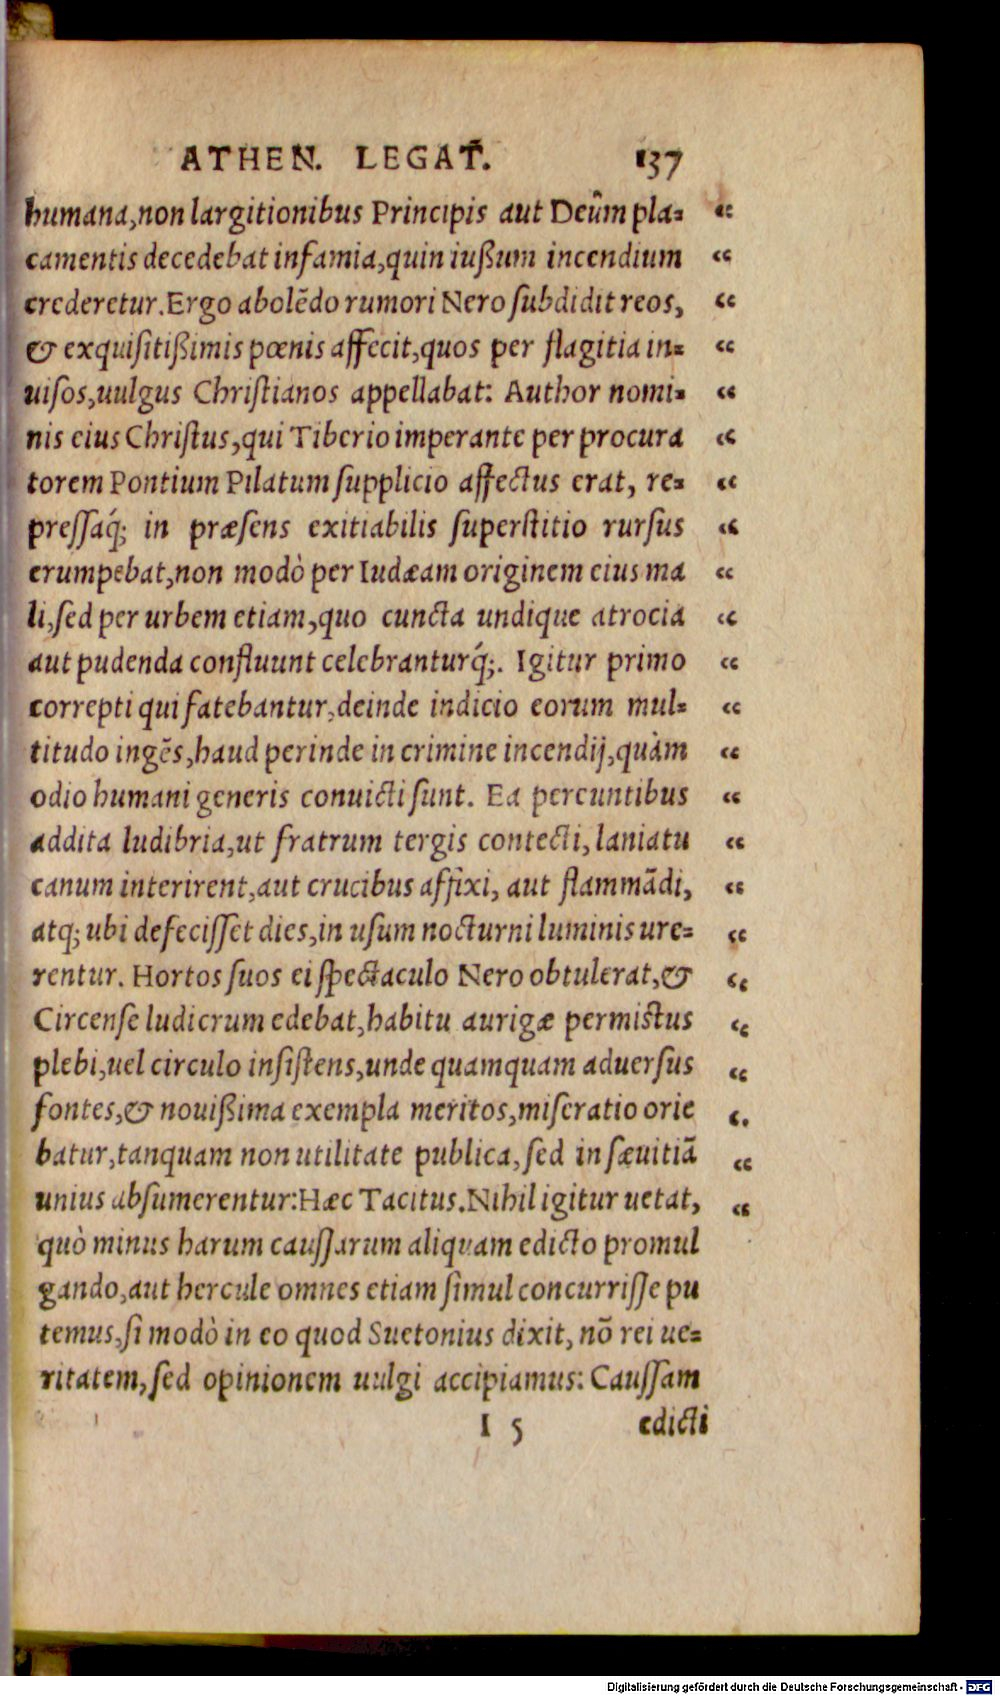 ATHEN. LEGAT̃. 137
humana,non largitionibus Principis aut Deûm pla= “
camentis decedebat infamia,quin iußum incendium “
crederetur.Ergo abolẽdo rumori Nero subdidit reos, “
& exquisitißimis pœnis affecit,quos per flagitia in= “
uisos,uulgus Christianos appellabat: Author nomi= “
nis eius Christus,qui Tiberio imperante per procura “
torem Pontium Pilatum supplicio affectus erat, re= “
pressaq́; in præsens exitiabilis superstitio rursus “
erumpebat,non modò per Iudæam originem eius ma “
li,sed per urbem etiam,quo cuncta undique atrocia “
aut pudenda confluunt celebranturq́;. Igitur primo “
correpti qui fatebantur,deinde indicio eorum mul= “
titudo ingẽs,haud perinde in crimine incendij,quàm “
odio humani generis conuicti sunt. Ea percuntibus “
addita ludibria,ut fratrum tergis contecti,laniatu “
canum interirent,aut crucibus affixi, aut flammãdi, “
atq; ubi defecisset dies,in usum nocturni luminis ure= “
rentur. Hortos suos ei spectaculo Nero obtulerat,& “
Circense ludicrum edebat,habitu aurigæ permistus “
plebi,uel circulo insistens,unde quamquam aduersus “
fontes,& nouißima exempla meritos,miseratio orie “
batur,tanquam non utilitate publica,sed in sæuitiã “
unius absumerentur:Hæc Tacitus.Nihil igitur uetat, “
quò minus harum caussarum aliquam edicto promul
gando,aut hercule omnes etiam simul concurrisse pu
temus,si modò in eo quod Suetonius dixit, nõ rei ue=
ritatem,sed opinionem uulgi accipiamus: Caussam
I 5 edicti
Digitalisierung gefördert durch die Deutsche Forschungsgemeinschaft - DFG